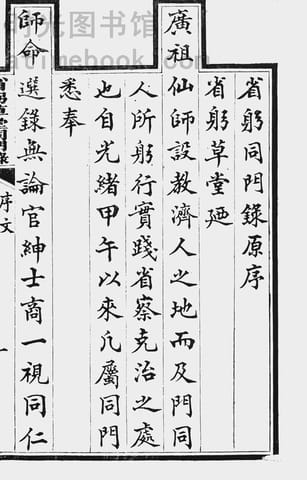 时光图书馆
省躬同門錄原序
省躬草堂廼
廣祖仙師設教濟人之地而及門同
人所躬行實踐省察克治之處
也自光緒甲午以來凡屬同門
悉奉
師命選錄無論官紳士商一視同仁
序文
一